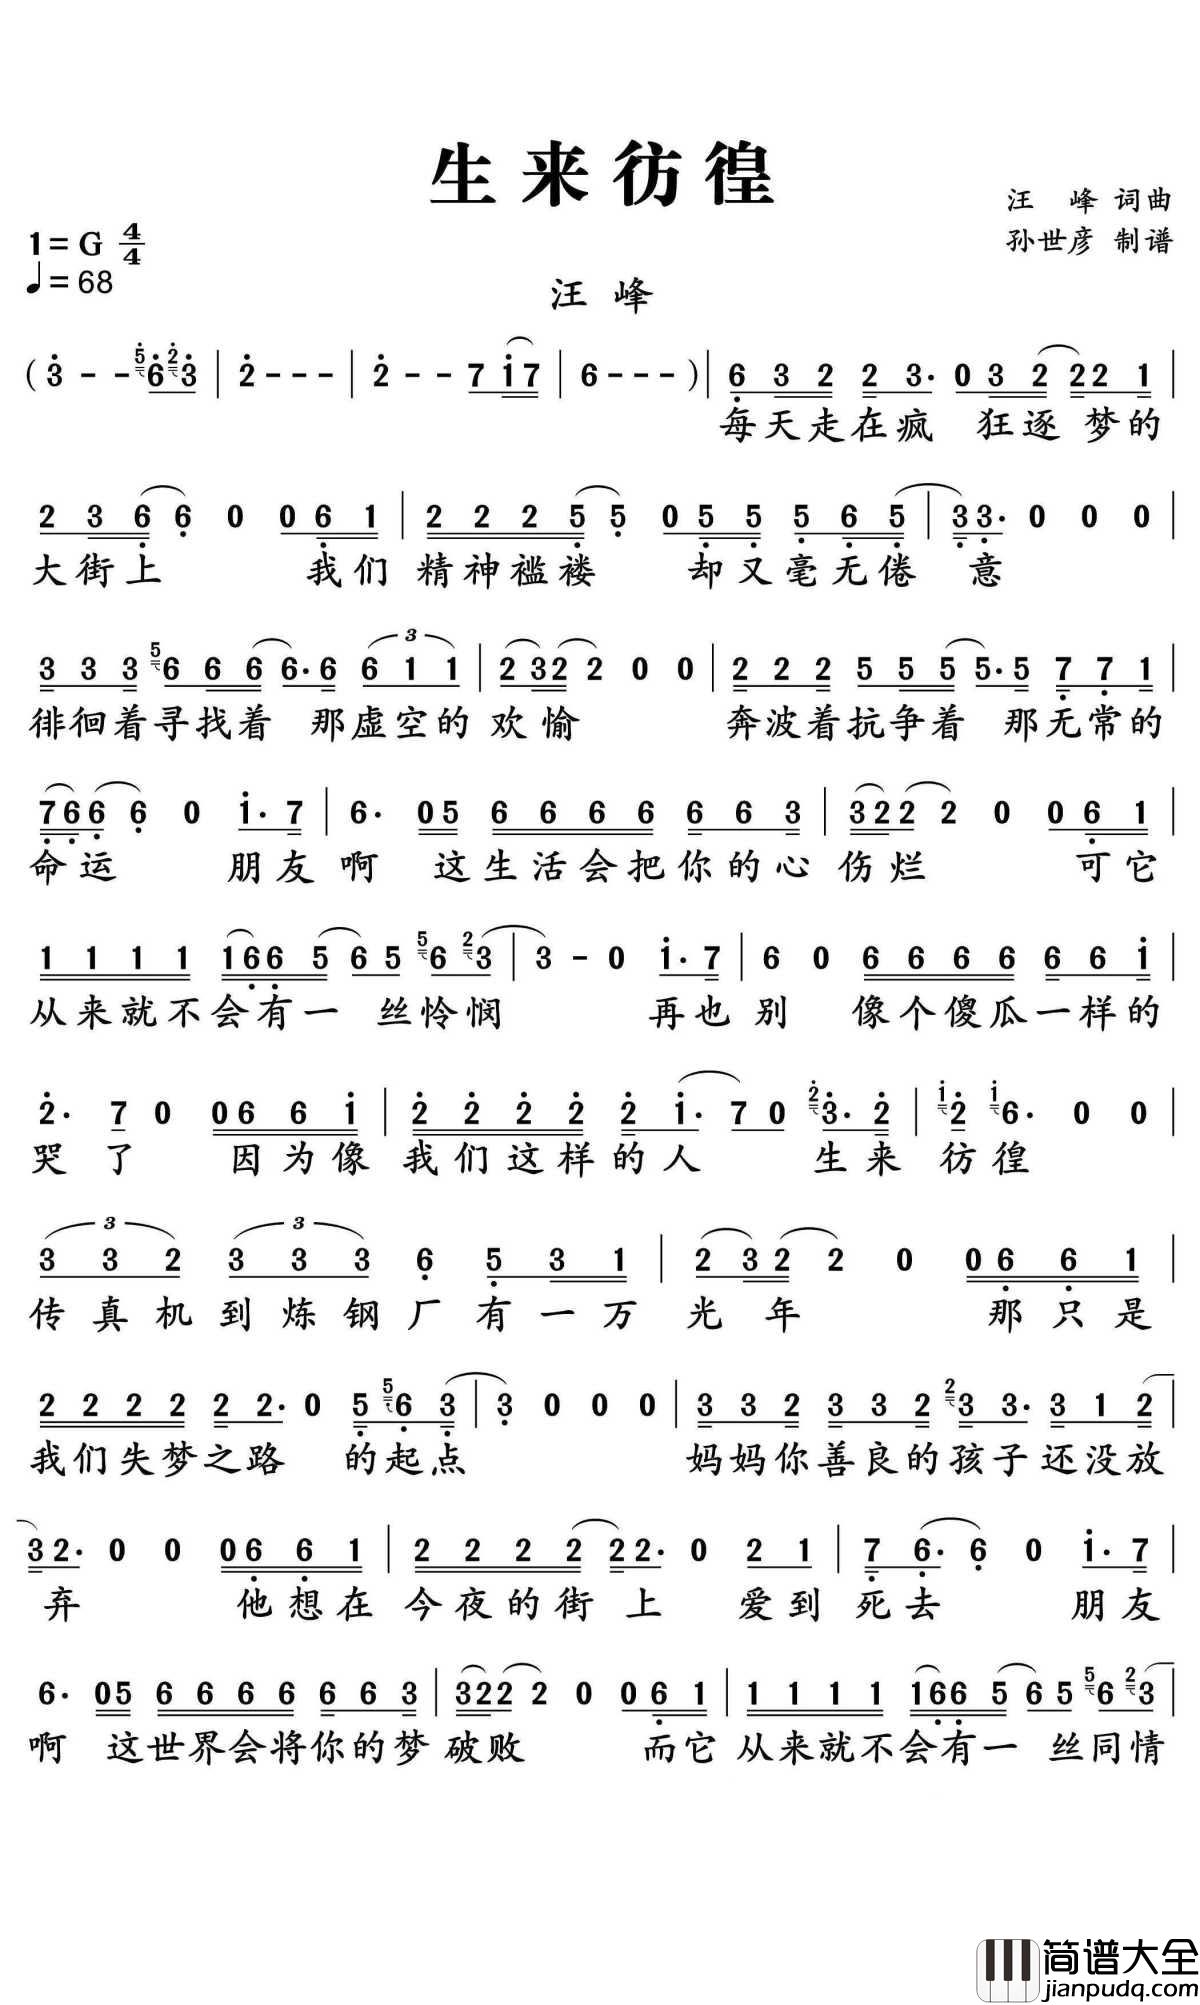 生来彷徨
汪 峰 词曲
1=G 4/4
孙世彦 制谱
♩=68
汪 峰
( 3 - - 5 6 2 3 | 2 - - - | 2 - - 7 1 7 | 6 - - - ) | 6 3 2 2 3· 0 3 2 2 2 1 |
每天走在疯 狂逐 梦的
2 3 6 6 0 0 6 1 | 2 2 2 5 5 0 5 5 5 6 5 | 3 3· 0 0 0 |
大街上 我们 精神褴褛 却又毫无倦 意
3 3 3 5 6 6 6 6· 6 3 6 1 1 | 2 3 2 2 0 0 | 2 2 2 5 5 5 5· 5 7 7 1 |
徘徊着寻找着 那虚空的 欢愉 奔波着抗争着 那无常的
7 6 6 6 0 1· 7 | 6· 0 5 6 6 6 6 6 6 3 | 3 2 2 2 0 0 6 1 |
命运 朋友 啊 这生活会把你的心 伤烂 可它
1 1 1 1 1 6 6 5 6 5 5 6 2 3 | 3 - 0 1· 7 | 6 0 6 6 6 6 6 6 1 |
从来就不会有一 丝怜悯 再也 别 像个傻瓜一样的
2· 7 0 0 6 6 1 | 2 2 2 2 2 1· 7 0 2 3· 2 | 1 2 1 6· 0 0 |
哭 了 因为像 我们这样的人 生来 彷徨
3 3 2 3 3 3 3 3 6 5 3 1 | 2 3 2 2 0 0 6 6 1 |
传真机到炼钢厂有一万 光年 那只是
2 2 2 2 2 2· 0 5 5 6 3 | 3 0 0 0 | 3 3 2 3 3 2 2 3 3· 3 1 2 |
我们失梦之路 的起点 妈妈你善良的孩子还没放
3 2· 0 0 0 6 6 1 | 2 2 2 2 2 2· 0 2 1 | 7 6· 6 0 1· 7 |
弃 他想在 今夜的街上 爱到 死去 朋友
6· 0 5 6 6 6 6 6 6 3 | 3 2 2 2 0 0 6 1 | 1 1 1 1 1 6 6 5 6 5 5 6 2 3 |
啊 这世界会将你的梦 破败 而它 从来就不会有一 丝同情
简谱大全
jianpudq.com